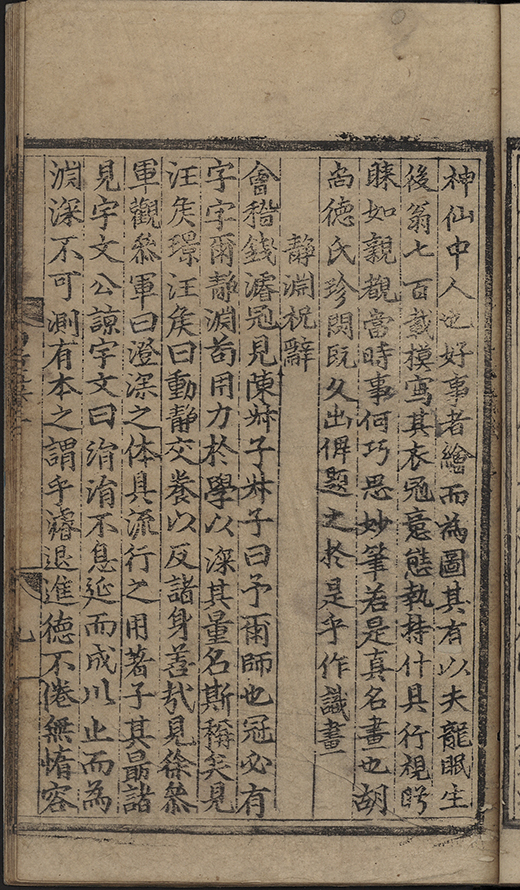 神仙中人也好事者繪而為圖其有以夫龍眠生
後翁七百載模寫其衣冠意態執持什具行視眄
睞如親覩當時事何巧思妙筆若是真名畫也胡
尚德氏珍閟既久出俾題之於是乎作識畫
靜淵祝辭
會稽錢濬冠見陳叔子叔子曰予爾師也冠必有
字字爾靜淵苟用力於學以深其量名斯稱矣見
汪矦璟汪矦曰動靜交養以反諸身善哉見徐叅
軍觀叅軍曰澄深之体具流行之用著子其最諸
見宇文公諒宇文曰涓涓不息延而成川止而為
淵深不可測有本之謂乎濬退進德不倦無惰容
九